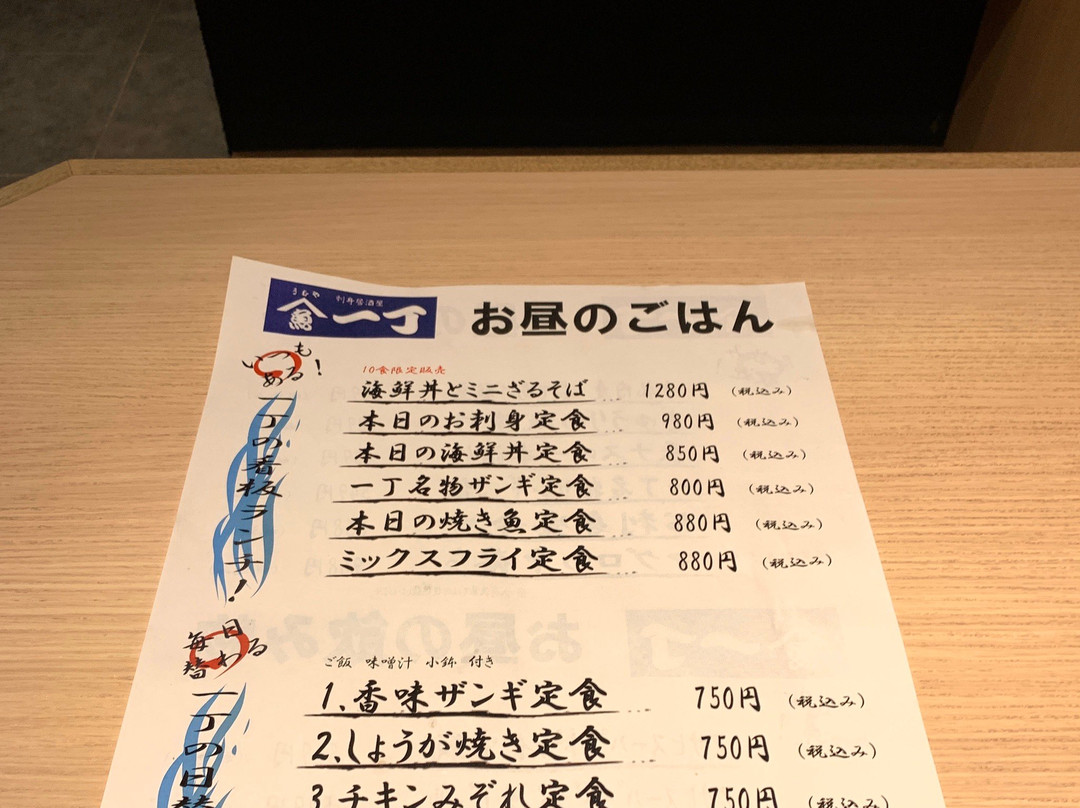 きむや
刺身居酒屋
魚一丁
お昼のごはん
いつもある!
一丁の看板ランチ!
10食限定販売
海鮮丼とミニざるそば 1280円 (税込み)
本日のお刺身定食 980円 (税込み)
本日の海鮮丼定食 850円 (税込み)
一丁名物ザンギ定食 800円 (税込み)
本日の焼き魚定食 880円 (税込み)
ミックスフライ定食 880円 (税込み)
毎日替わる
一丁の日替
ご飯 味噌汁 小鉢 付き
1.香味ザンギ定食 750円 (税込み)
2.しょうが焼き定食 750円 (税込み)
3.チキンみぞれ定食 750円 (税込み)